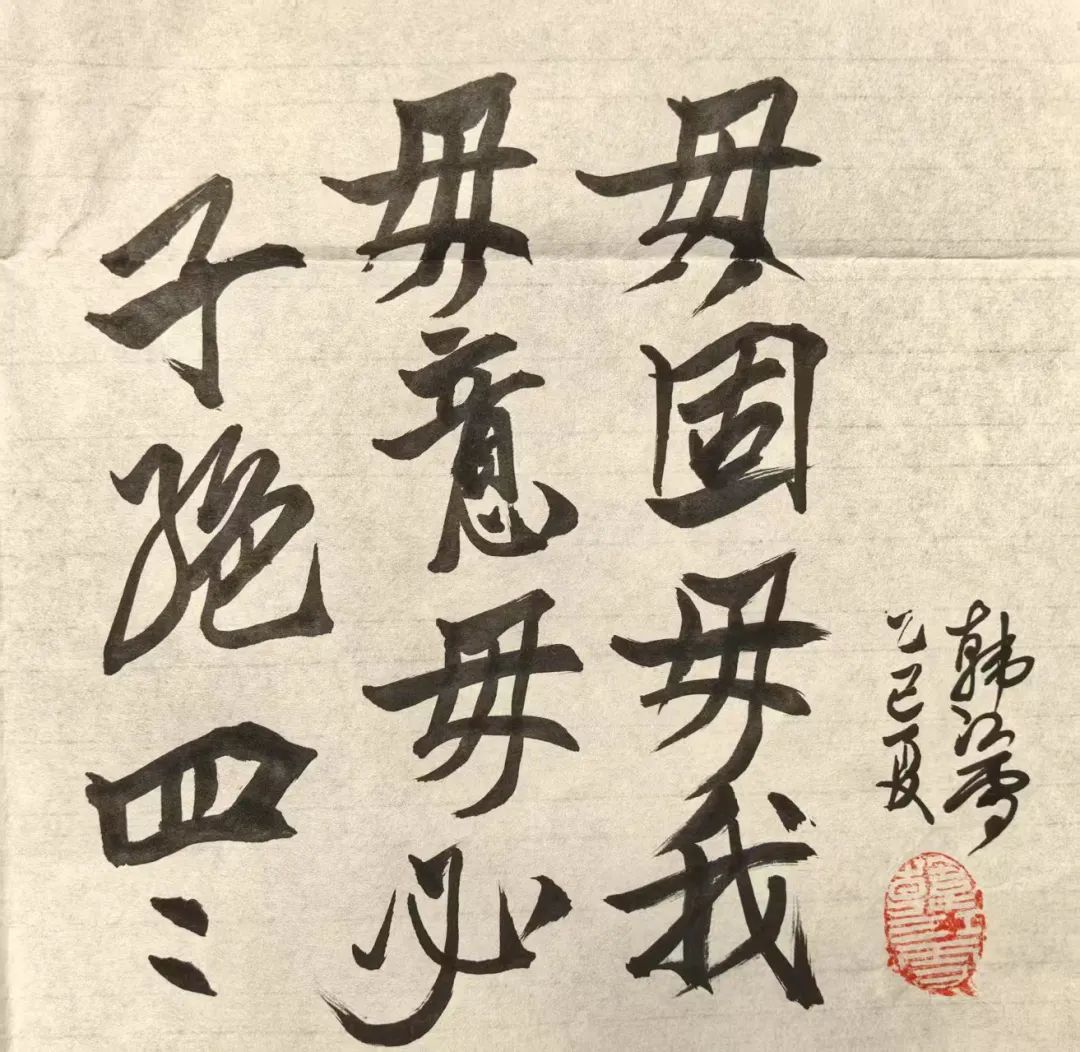 子绝四：
毋意毋必
毋固毋我
乙巳夏
韩江雪